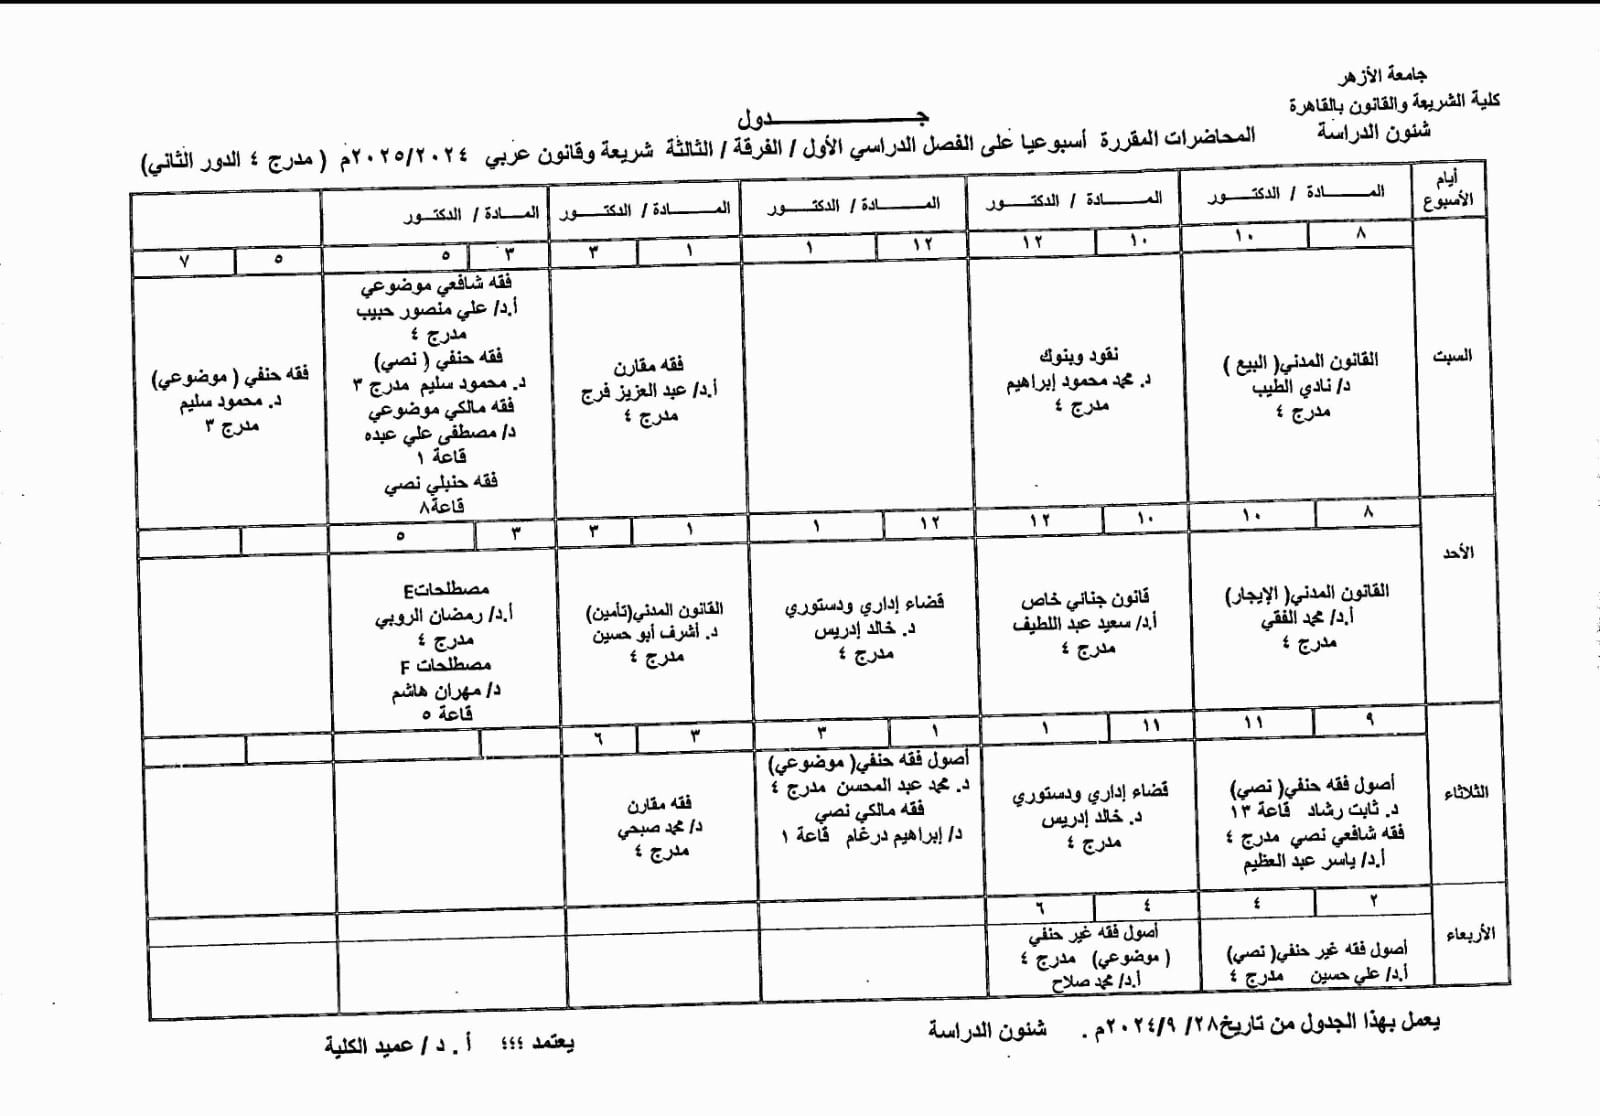 جامعة الأزهر
كلية الشريعة والقانون بالقاهرة
شئون الدراسة
جـــــدول
المحاضرات المقررة أسبوعيا على الفصل الدراسي الأول / الفرقة / الثالثة شريعة وقانون عربي ٢٠٢٥/٢٠٢٤م ( مدرج ٤ الدور الثاني)
أيام الأسبوع
المـــادة / الدكتــور
المـــادة / الدكتــور
المـــادة / الدكتــور
المـــادة / الدكتــور
المـــادة / الدكتــور
السبت
٨ ١٠
القانون المدني( البيع )
د/ نادي الطيب
مدرج ٤
١٠ ١٢
نقود وبنوك
د. محمد محمود إبراهيم
مدرج ٤
١٢ ١
١ ٣
فقه مقارن
أ.د/ عبد العزيز فرج
مدرج ٤
٣ ٥
فقه شافعي موضوعي
أ.د/ علي منصور حبيب
مدرج ٤
فقه حنفي ( نصي)
د. محمود سليم مدرج ٣
فقه مالكي موضوعي
د/ مصطفى علي عبده
قاعة ١
فقه حنبلي نصي
قاعة٨
٥ ٧
فقه حنفي ( موضوعي)
د. محمود سليم
مدرج ٣
الأحد
٨ ١٠
القانون المدني( الإيجار)
أ.د/ محمد الفقي
مدرج ٤
١٠ ١٢
قانون جنائي خاص
أ.د/ سعيد عبد اللطيف
مدرج ٤
١٢ ١
قضاء إداري ودستوري
د. خالد إدريس
مدرج ٤
١ ٣
القانون المدني(تأمين)
د. أشرف أبو حسين
مدرج ٤
٣ ٥
مصطلحاتE
أ.د/ رمضان الروبي
مدرج ٤
مصطلحات F
د/ مهران هاشم
قاعة ٥
الثلاثاء
٩ ١١
أصول فقه حنفي( نصي)
د. ثابت رشاد قاعة ١٣
فقه شافعي نصي مدرج ٤
أ.د/ ياسر عبد العظيم
١١ ١
قضاء إداري ودستوري
د. خالد إدريس
مدرج ٤
١ ٣
أصول فقه حنفي( موضوعي)
د. محمد عبد المحسن مدرج ٤
فقه مالكي نصي
د/ إبراهيم درغام قاعة ١
٣ ٦
فقه مقارن
د/ محمد صبحي
مدرج ٤
الأربعاء
٢ ٤
أصول فقه غير حنفي( نصي)
أ.د/ علي حسين مدرج ٤
٤ ٦
أصول فقه غير حنفي
( موضوعي) مدرج ٤
أ.د/ محمد صلاح
يعمل بهذا الجدول من تاريخ٢٨/ ٢٠٢٤/٩م . شئون الدراسة
يعتمد ،،، أ . د / عميد الكلية